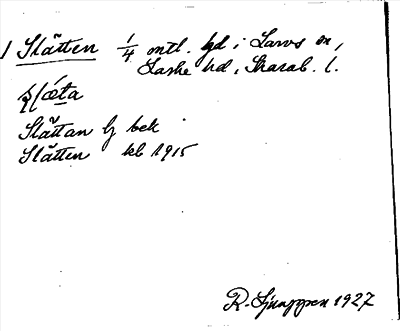 1 Slätten 1/4 mtl. gd i Larvs sn,
Laske hd, Skarab. l.
slæta
Slättan lj bek
Slätten kb 1915
R. Ljunggren 1927